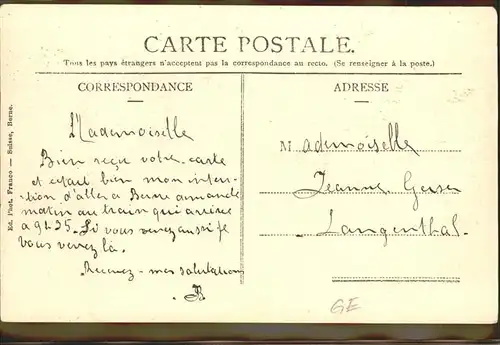 CARTE POSTALE.
Tous les pays étrangers n'acceptent pas la correspondance au recto. (Se renseigner à la poste.)
CORRESPONDANCE
Mademoiselle
Bien reçu votre carte
et était bien mon inten-
tion d'aller a Berne
matin au train qui arrive
a 9h 35. Si vous venez aussi je
vous verez là.
Recevez mes salutations
B
ADRESSE
Mademoiselle
Jeanne Geiser
Langenthal.
GE
Ed. Phot. Franco — Suisse, Berne.